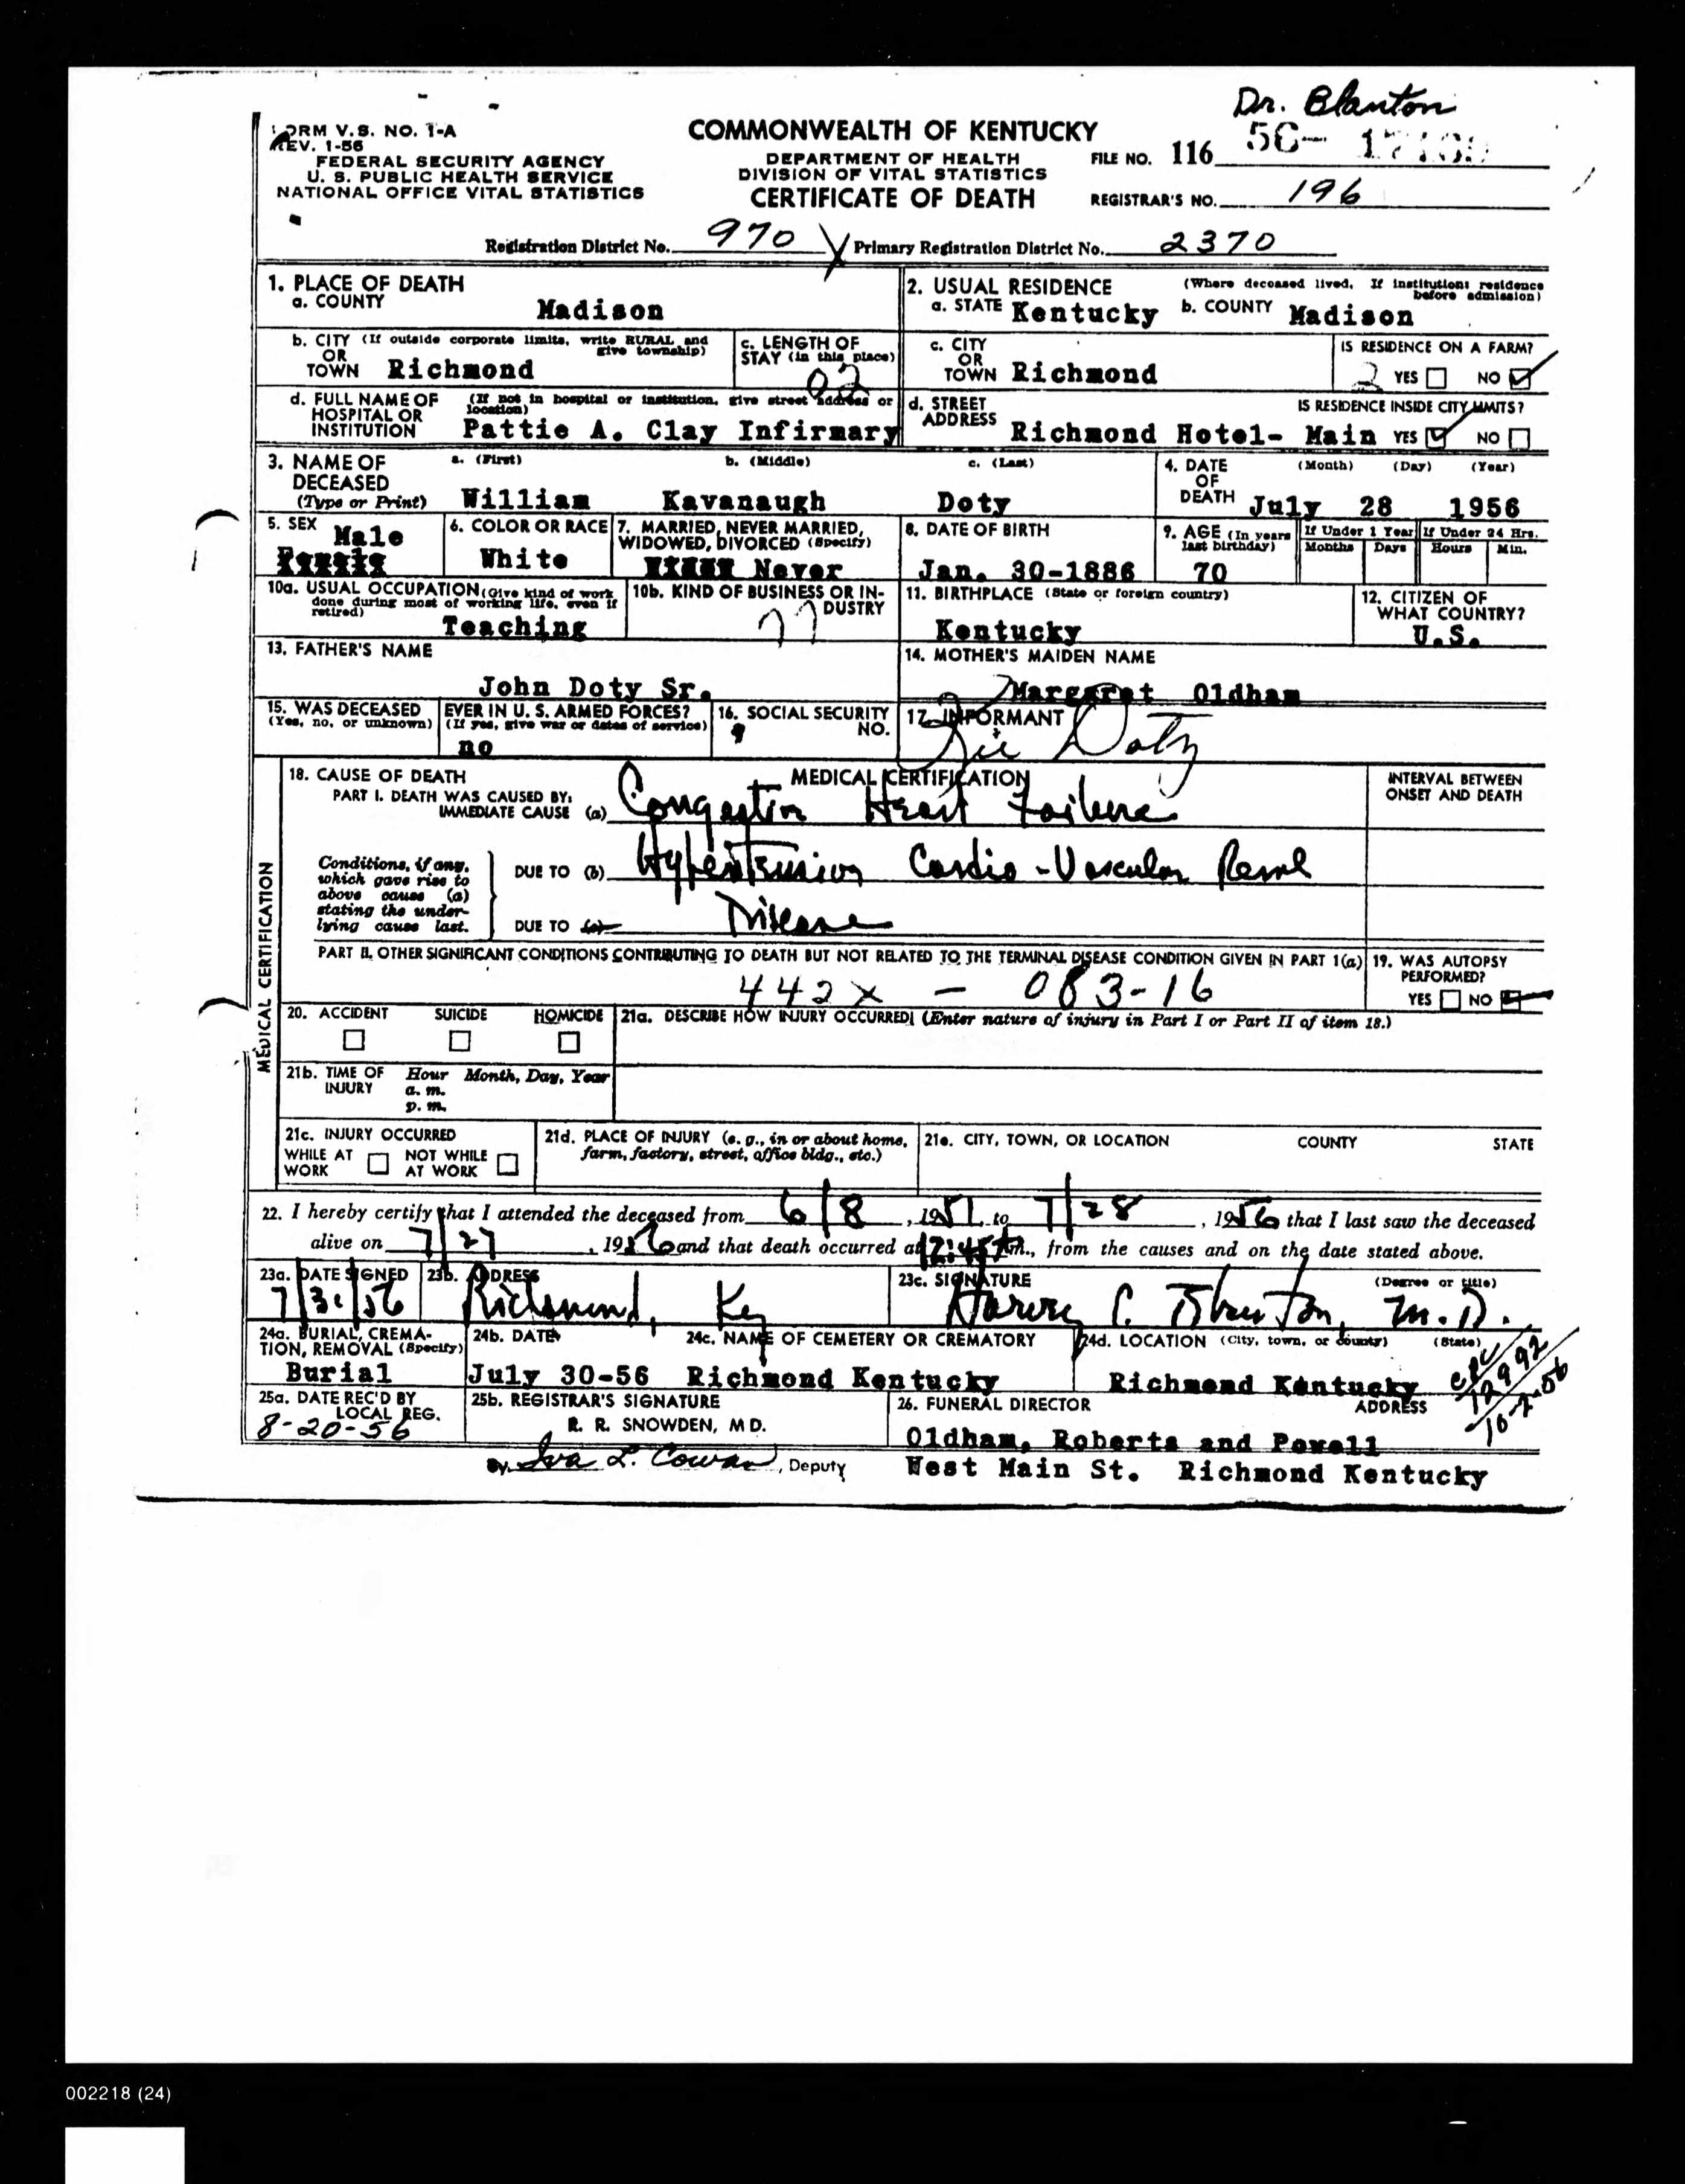 Dr. Blanton
FORM V.S. NO. 1-A
REV. 1-56
FEDERAL SECURITY AGENCY
U. S. PUBLIC HEALTH SERVICE
NATIONAL OFFICE VITAL STATISTICS
COMMONWEALTH OF KENTUCKY
DEPARTMENT OF HEALTH
DIVISION OF VITAL STATISTICS
CERTIFICATE OF DEATH
FILE NO. 116 56-
REGISTRAR'S NO. 196
Registration District No. 970 Primary Registration District No. 2370
1. PLACE OF DEATH
a. COUNTY
Madison
2. USUAL RESIDENCE (Where deceased lived. If institution: residence before admission)
a. STATE Kentucky b. COUNTY Madison
b. CITY (If outside corporate limits, write RURAL and give township)
OR
TOWN Richmond
c. LENGTH OF
STAY (in this place)
02
c. CITY
OR
TOWN Richmond
IS RESIDENCE ON A FARM?
2 YES NO
d. FULL NAME OF (If not in hospital or institution, give street address or location)
HOSPITAL OR
INSTITUTION Pattie A. Clay Infirmary
d. STREET
ADDRESS Richmond Hotel- Main
IS RESIDENCE INSIDE CITY LIMITS?
YES NO
3. NAME OF
DECEASED
(Type or Print)
a. (First) b. (Middle) c. (Last)
William Kavanaugh Doty
4. DATE
OF
DEATH
(Month) (Day) (Year)
July 28 1956
5. SEX Male
6. COLOR OR RACE
White
7. MARRIED, NEVER MARRIED,
WIDOWED, DIVORCED (Specify)
Never
8. DATE OF BIRTH
Jan. 30-1886
9. AGE (In years
last birthday)
70
If Under 1 Year If Under 24 Hrs.
Months Days Hours Min.
10a. USUAL OCCUPATION (Give kind of work
done during most of working life, even if
retired)
Teaching
10b. KIND OF BUSINESS OR IN-
DUSTRY
77
11. BIRTHPLACE (State or foreign country)
Kentucky
12. CITIZEN OF
WHAT COUNTRY?
U.S.
13. FATHER'S NAME
John Doty Sr.
14. MOTHER'S MAIDEN NAME
Margaret Oldham
15. WAS DECEASED EVER IN U. S. ARMED FORCES?
(Yes, no, or unknown) (If yes, give war or dates of service)
no
16. SOCIAL SECURITY
NO.
9
17. INFORMANT
Doty
MEDICAL CERTIFICATION
18. CAUSE OF DEATH
MEDICAL CERTIFICATION
INTERVAL BETWEEN
ONSET AND DEATH
PART I. DEATH WAS CAUSED BY:
IMMEDIATE CAUSE (a) Congestive Heart Failure
Conditions, if any,
which gave rise to
above cause (a)
stating the under-
lying cause last.
DUE TO (b) Hypertension Cardio-Vascular Renal
DUE TO (c) Disease
PART II. OTHER SIGNIFICANT CONDITIONS CONTRIBUTING TO DEATH BUT NOT RELATED TO THE TERMINAL DISEASE CONDITION GIVEN IN PART 1(a)
442X - 083-16
19. WAS AUTOPSY
PERFORMED?
YES NO
20. ACCIDENT SUICIDE HOMICIDE
21a. DESCRIBE HOW INJURY OCCURRED: (Enter nature of injury in Part I or Part II of item 18.)
21b. TIME OF
INJURY
Hour Month, Day, Year
a. m.
p. m.
21c. INJURY OCCURRED
WHILE AT
WORK
NOT WHILE
AT WORK
21d. PLACE OF INJURY (e. g., in or about home,
farm, factory, street, office bldg., etc.)
21e. CITY, TOWN, OR LOCATION COUNTY STATE
22. I hereby certify that I attended the deceased from 6/8, 1951, to 7/28, 1956 that I last saw the deceased
alive on 7/27, 1956 and that death occurred at 12:45 m., from the causes and on the date stated above.
23a. DATE SIGNED
7/30/56
23b. ADDRESS
Richmond, Ky
23c. SIGNATURE (Degree or title)
Harvey C. Blanton, M.D.
24a. BURIAL, CREMA-
TION, REMOVAL (Specify)
Burial
24b. DATE
July 30-56
24c. NAME OF CEMETERY OR CREMATORY
Richmond Kentucky
24d. LOCATION (City, town, or county) (State)
Richmond Kentucky
12992
10-2-56
25a. DATE REC'D BY
LOCAL REG.
8-20-56
25b. REGISTRAR'S SIGNATURE
R. R. SNOWDEN, M D.
By Iva L. Cowan, Deputy
26. FUNERAL DIRECTOR ADDRESS
Oldham, Roberts and Powell
West Main St. Richmond Kentucky
002218 (24)